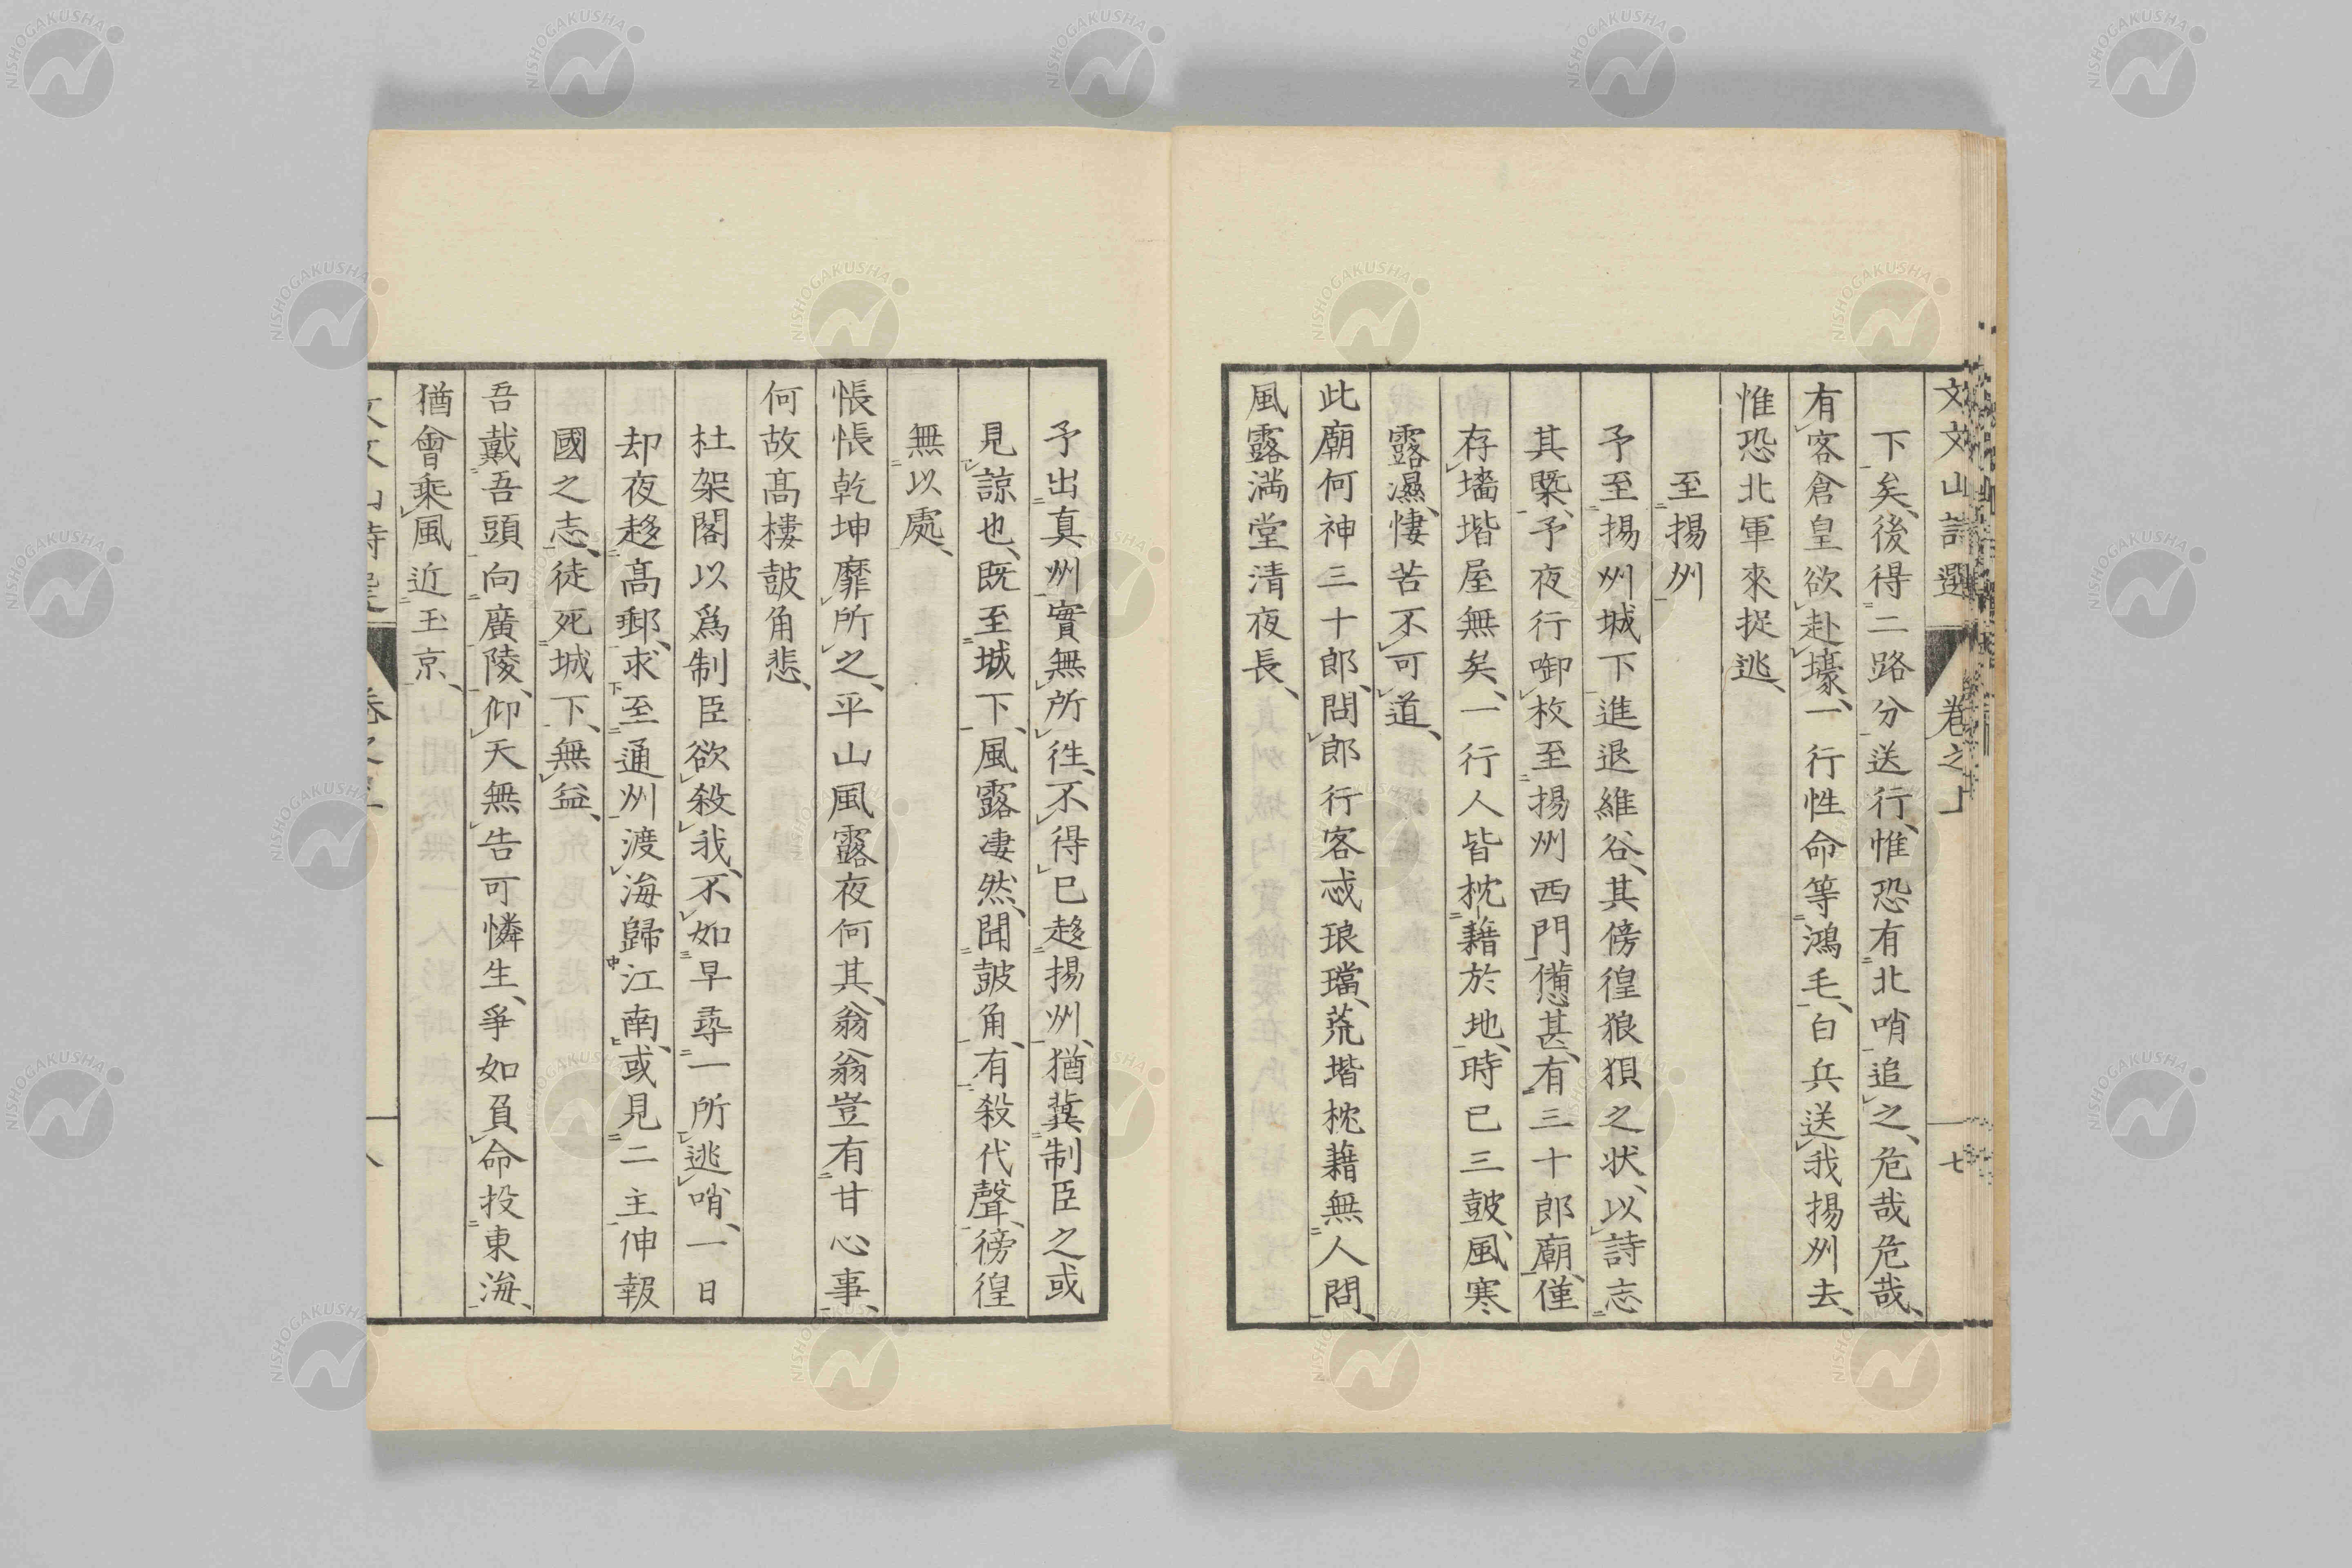 文文山詩選　卷之上　七
下矣、後得二路分送行、惟恐有北哨追之、危哉危哉、
有客倉皇欲赴壕、一行性命等鴻毛、白兵送我揚州去、
惟恐北軍來捉逃、
至揚州
予至揚州城下進退維谷、其傍徨狼狽之状、以詩志
其槩、予夜行啣枚至揚州西門、憊甚、有三十郎廟、僅
存墻堦屋無矣、一行人皆枕藉於地、時已三皷、風寒
露濕、悽苦不可道、
此廟何神三十郎、問郎行客忒琅璫、荒堦枕藉無人問、
風露滿堂清夜長、
予出真州實無所徃、不得已趍揚州、猶冀制臣之或
見諒也、既至城下、風露凄然、聞皷角、有殺代聲、徬徨
無以處、
悵悵乾坤靡所之、平山風露夜何其、翁翁豈有甘心事、
何故髙樓皷角悲、
杜架閣以爲制臣欲殺我、不如早尋一所逃哨、一日
却夜趍髙郵、求至通州渡海歸江南、或見二主伸報
國之志、徒死城下、無益、
吾戴吾頭向廣陵、仰天無告可憐生、爭如負命投東海、
猶會乗風近玉京、